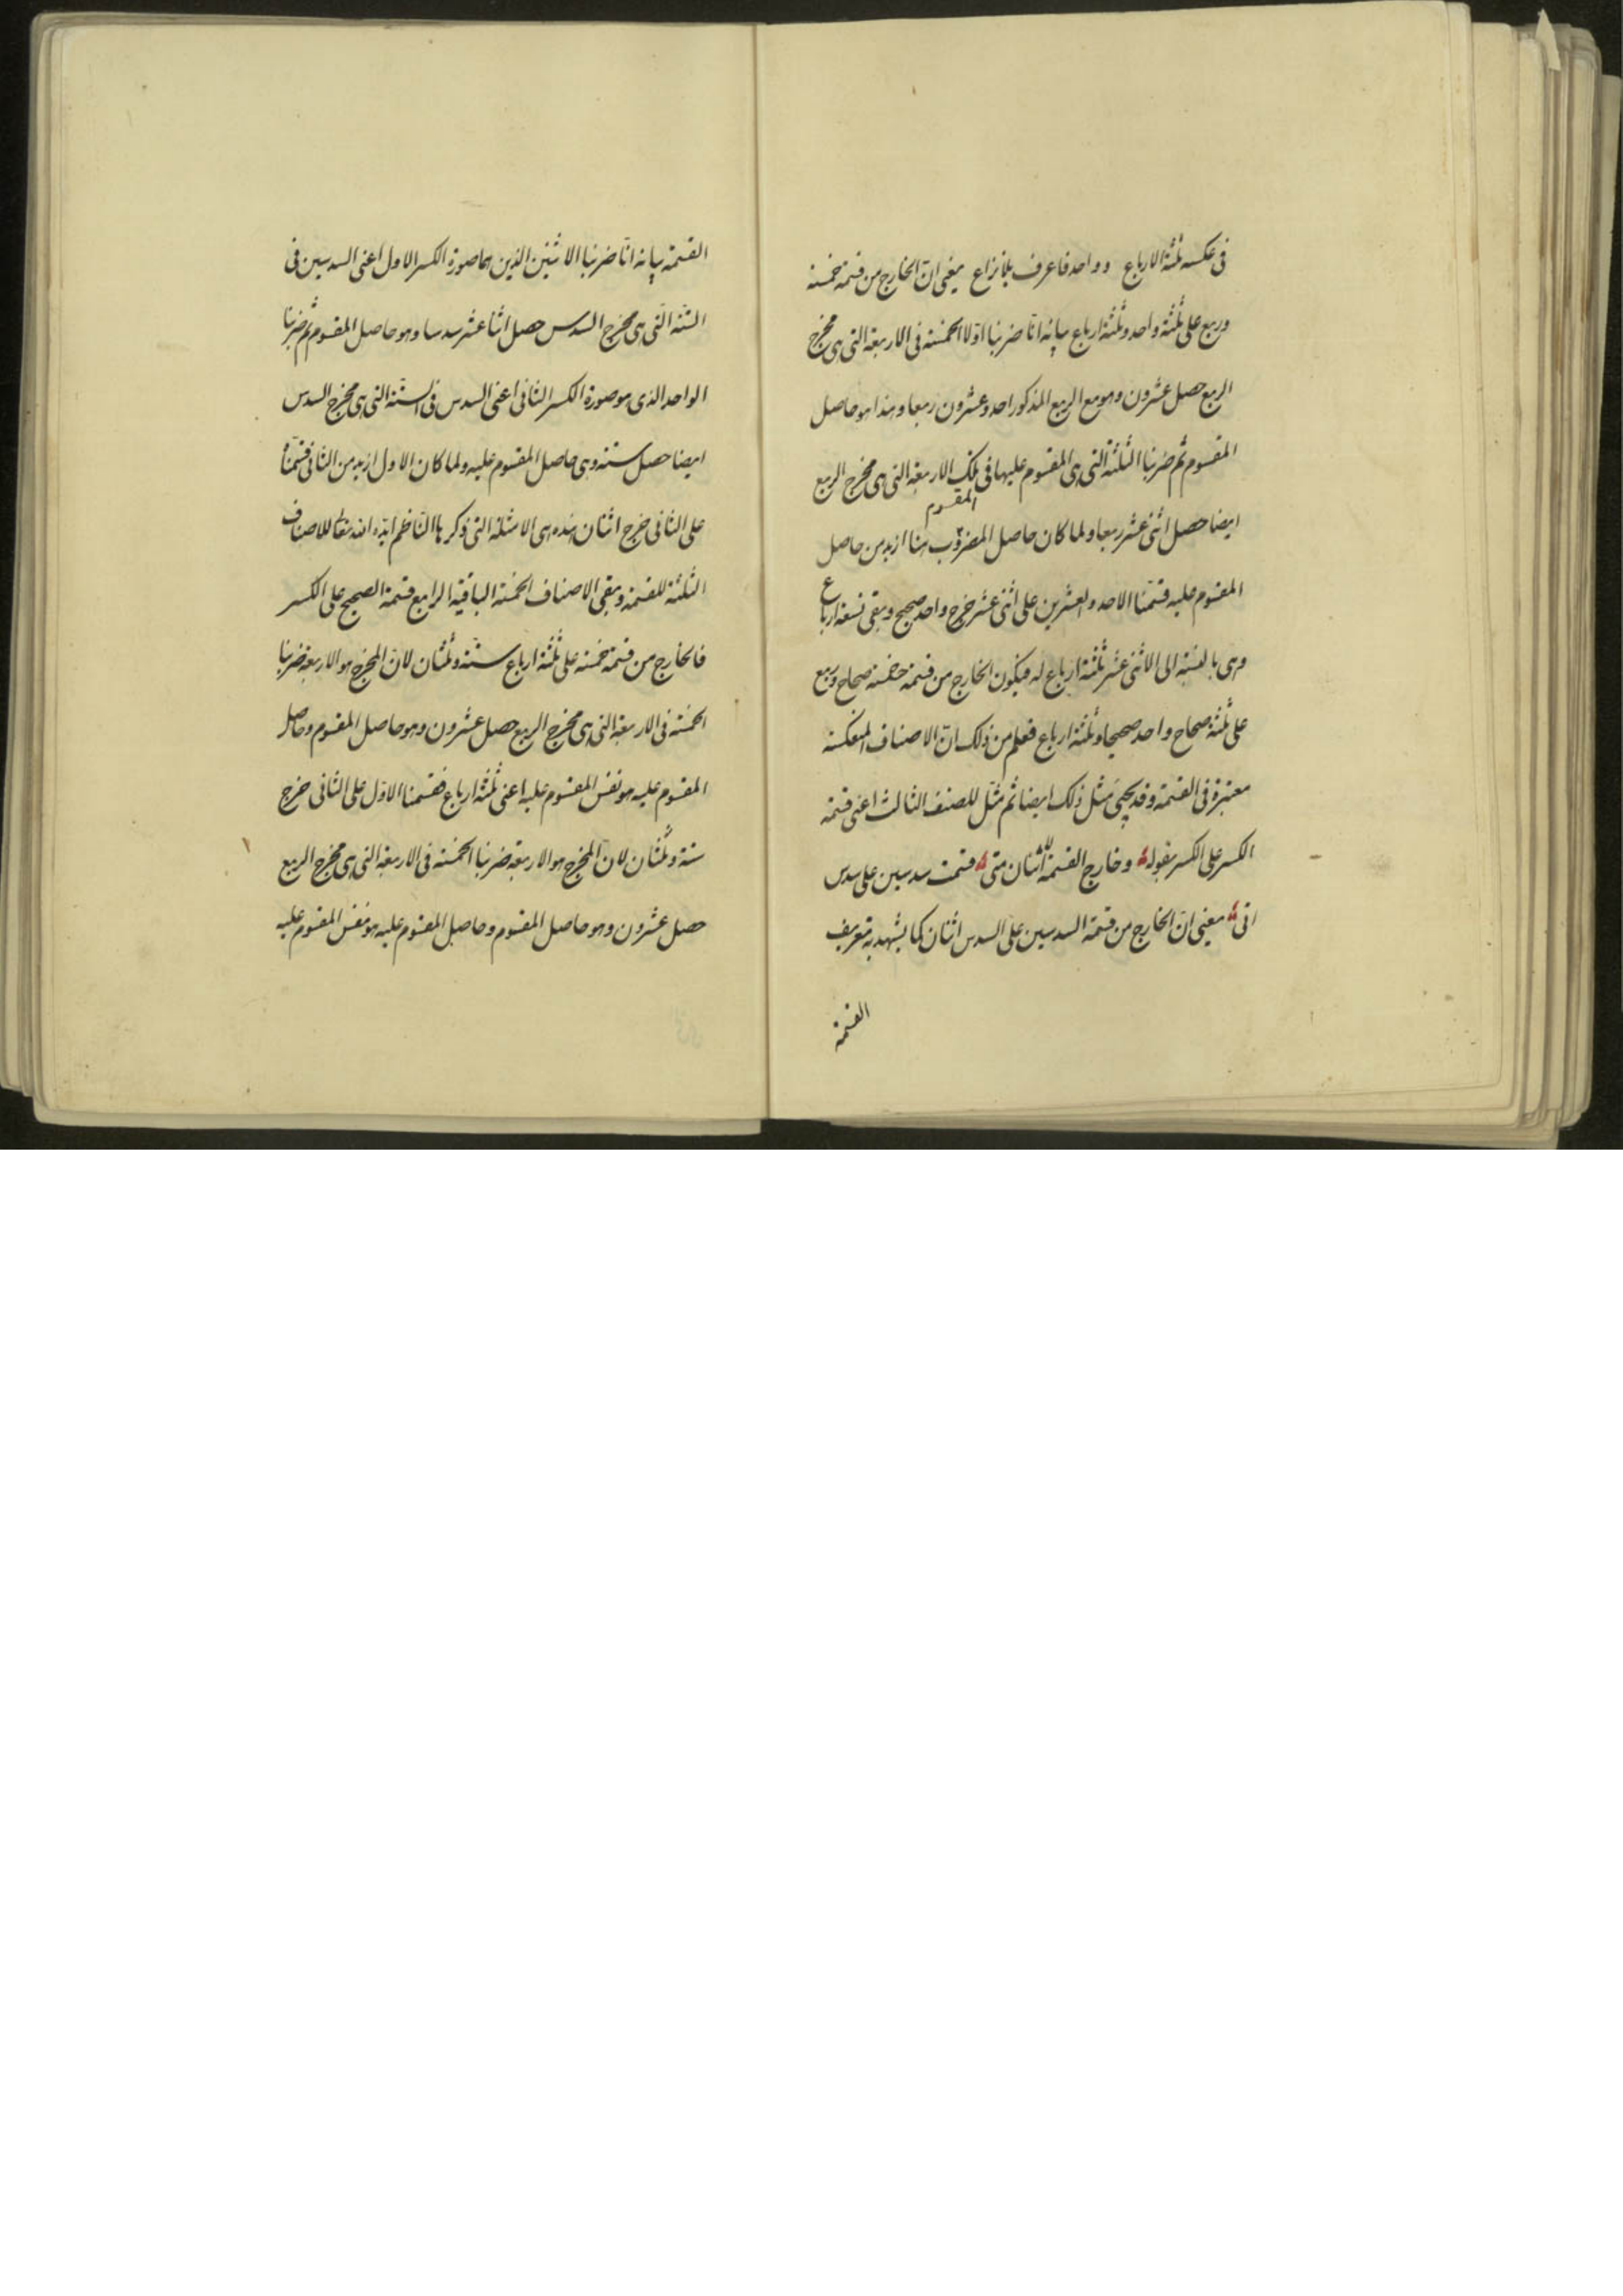 فى عكسه ثلثة الارباع و واحد فاعرف بلا نزاع يعنى ان الخارج من قسمة خمسة
وربع على ثلثة واحد وثلثة ارباع بيانه انا ضربنا اولا الخمسة فى الاربعة التى هى مخرج
الربع حصل عشرون وهو مع الربع المذكور احد وعشرون ربعا وهذا هو حاصل
المقسوم ثم ضربنا الثلثة التى هى المقسوم عليها فى تلك الاربعة التى هى مخرج الربع
المقسوم
ايضا حصل اثنى عشر ربعا ولما كان حاصل المضروب هنا ازيد من حاصل
المقسوم عليه قسمنا الاحد والعشرين على اثنى عشر خرج واحد صحيح وبقى تسعة ارباع
وهى بالنسبة الى الاثنى عشر ثلثة ارباع له فيكون الخارج من قسمة خمسة صحاح وربع
على ثلثة صحاح واحد صحيحا وثلثة ارباع فعلم من ذلك ان الاصناف المنعكسة
معتبرة فى القسمة وقد يجيئ مثل ذلك ايضا ثم مثل للصنف الثالث اعنى قسمة
الكسر على الكسر بقوله وخارج القسمة اثنان متى قسمت سدسين على سدس
اتى يعنى ان الخارج من قسمة السدسين على السدس اثنان كما يشهد به تعريف
القسمة
القسمة بيانه انا ضربنا الاثنين الذين هما صورة الكسر الاول اعنى السدسين فى
الستة التى هى مخرج السدس حصل اثنا عشر سدسا وهو حاصل المقسوم ثم ضربنا
الواحد الذى هو صورة الكسر الثانى اعنى السدس فى الستة التى هى مخرج السدس
ايضا حصل ستة وهى حاصل المقسوم عليه ولما كان الاول ازيد من الثانى قسمناه
على الثانى خرج اثنان هذه هى الامثلة التى ذكرها الناظم ايده الله تعالى للاصناف
الثلثة للقسمة وبقى الاصناف الخمسة الباقية الرابع قسمة الصحيح على الكسر
فالخارج من قسمة خمسة على ثلثة ارباع ستة وثلثان لان المخرج هو الاربعة ضربنا
الخمسة فى الاربعة التى هى مخرج الربع حصل عشرون وهو حاصل المقسوم وحاصل
المقسوم عليه هو نفس المقسوم عليه اعنى ثلثة ارباع فقسمنا الاول على الثانى خرج
ستة وثلثان لان المخرج هو الاربعة ضربنا الخمسة فى الاربعة التى هى مخرج الربع
حصل عشرون وهو حاصل المقسوم وحاصل المقسوم عليه هو نفس المقسوم عليه